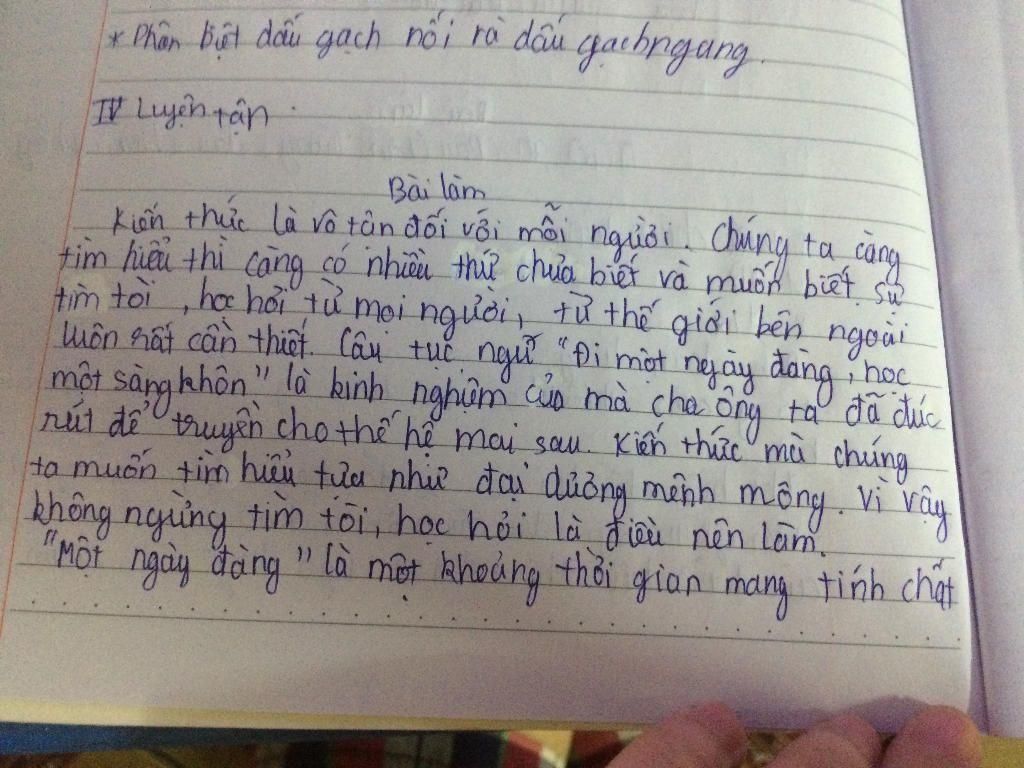 * Phân biệt dấu gạch nối và dấu gạch ngang.
IV Luyện tận.
Bài làm
Kiến thức là vô tận đối với mỗi người. Chúng ta càng
tìm hiểu thì càng có nhiều thứ chưa biết và muốn biết. sự
tìm tòi, học hỏi từ mọi người, từ thế giới bên ngoài
luôn rất cần thiết. Câu tục ngữ "Đi một ngày đàng, học
một sàng khôn" là kinh nghiệm của mà cha ông ta đã đúc
rút để truyền cho thế hệ mai sau. Kiến thức mà chúng
ta muốn tìm hiểu tựa như đại dương mênh mông. Vì vậy
không ngừng tìm tòi, học hỏi là điều nên làm.
"Một ngày đàng" là một khoảng thời gian mang tính chất